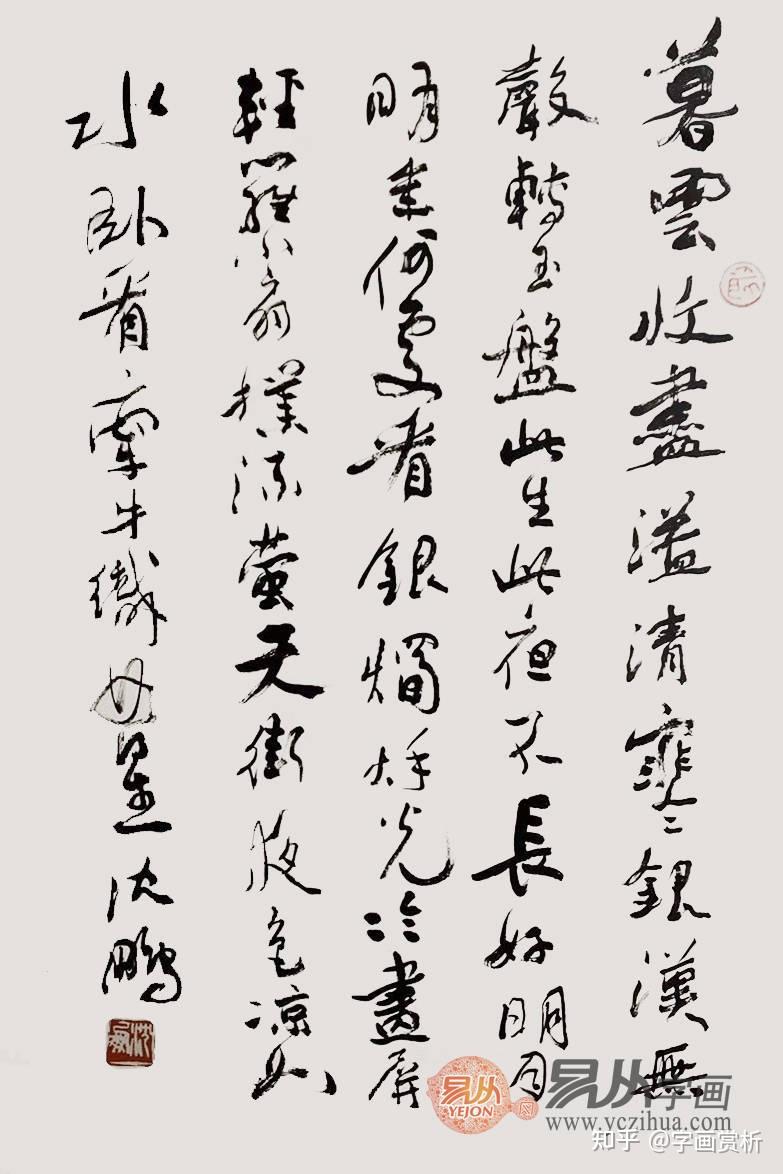 暮雲收盡溢清寒銀漢無
聲轉玉盤此生此夜不長好明月
明年何處看銀燭秋光冷畫屏
輕羅小扇撲流螢天街夜色涼如
水卧看牽牛織女星沈鵬
易从
YEJON
易从字画
www.yczihua.com
知乎 @字画赏析